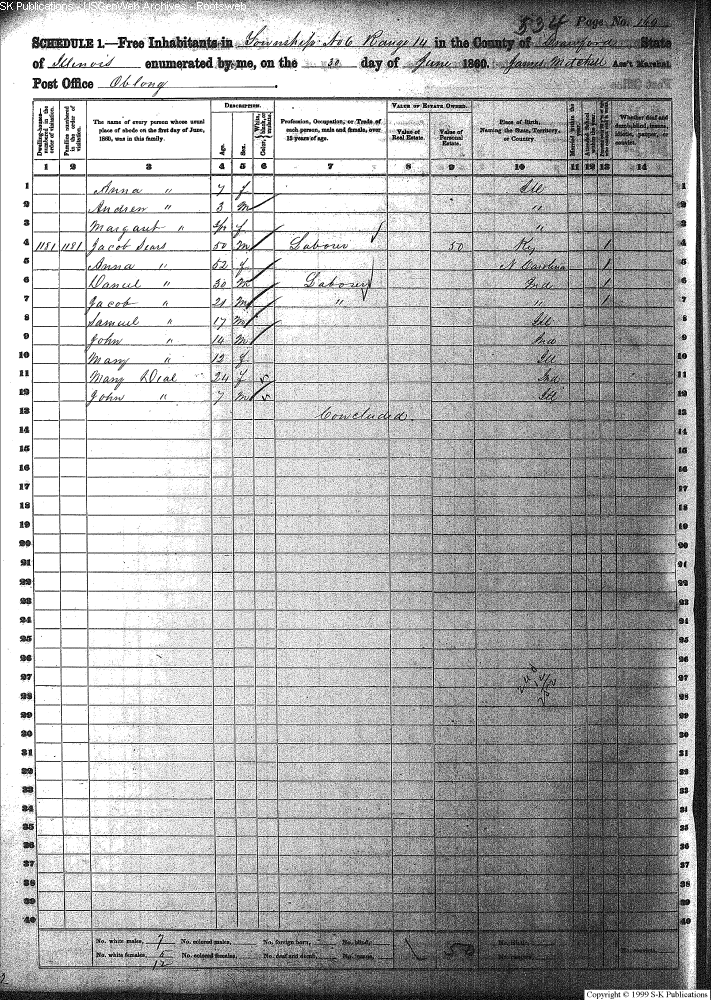 SK Publications - USGenWeb Archives - Rootsweb
534 Page No. 160
SCHEDULE 1.—Free Inhabitants in Township No 6 Range 14 in the County of Crawford State
of Illinois enumerated by me, on the 30 day of June 1860. James Mitchell Ass't Marshal.
Post Office Oblong
Dwelling-house—numbered in the order of visitation.
Families numbered in the order of visitation.
The name of every person whose usual place of abode on the first day of June, 1860, was in this family.
DESCRIPTION.
Age.
Sex.
Color, White, black, or mulatto.
Profession, Occupation, or Trade of each person, male and female, over 15 years of age.
VALUE OF ESTATE OWNED.
Value of Real Estate.
Value of Personal Estate.
Place of Birth, Naming the State, Territory, or Country.
Married within the year.
Whether deaf and dumb, blind, insane, idiotic, pauper, or convict.
1 2 3 4 5 6 7 8 9 10 11 12 13 14
1 Anna " 7 f Ill 1
2 Andrew " 3 m " 2
3 Margaret " f " 3
4 1181 1181 Jacob Sears 50 m Laborer 50 Ky 1 4
5 Anna " 52 f N Carolina 1 5
6 Daniel " 30 m Laborer Ind 1 6
7 Jacob " 21 m " " 1 7
8 Samuel " 17 m Ill 8
9 John " 14 m Ind 9
10 Mary " 12 f Ill 10
11 Mary Deal 24 f Ind 11
12 John " 7 m Ill 12
13 Concluded. 13
14 14
15 15
16 16
17 17
18 18
19 19
20 20
21 21
22 22
23 23
24 24
25 25
26 26
27 27
28 28
29 29
30 30
31 31
32 32
33 33
34 34
35 35
36 36
37 37
38 38
39 39
40 40
No. white males, 7 No. colored males, No. foreign born, No. blind,
No. white females, 5 No. colored females, No. deaf and dumb, No. insane, 50
12
Copyright © 1999 S-K Publications